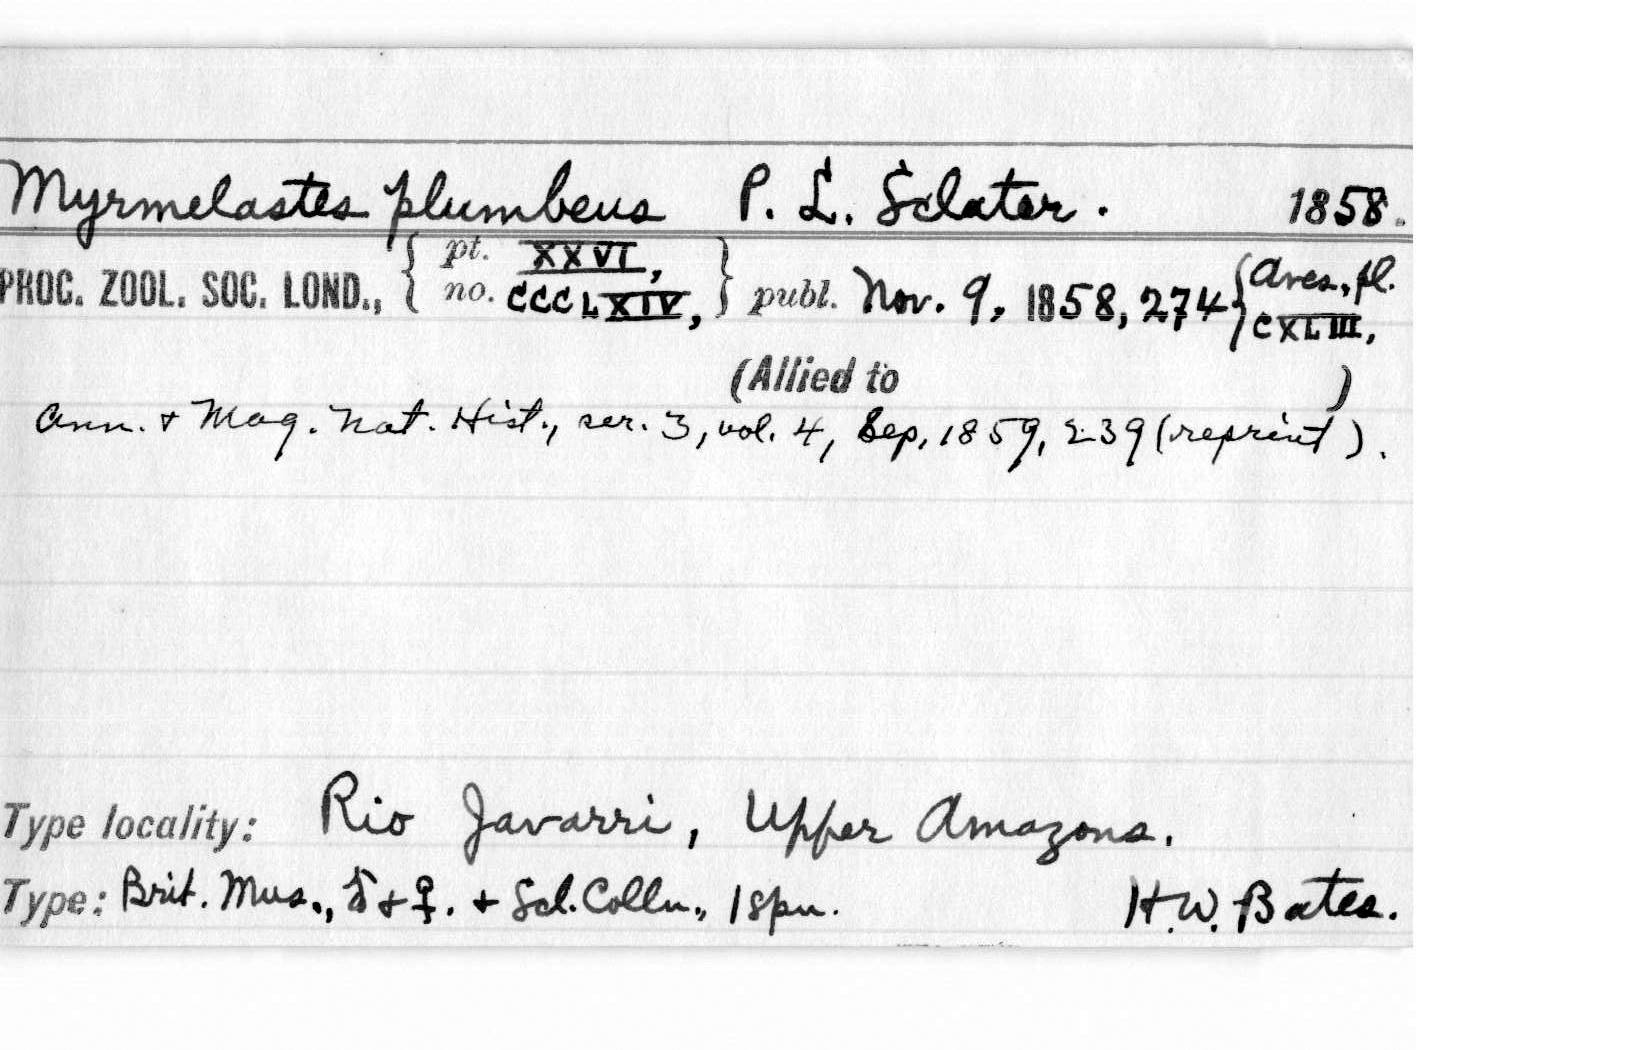 Myrmelastes plumbeus P. L. Sclater. 1858.
PROC. ZOOL. SOC. LOND., { pt. XXVI, no. CCCLXIV, } publ. Nov. 9, 1858, 274 { Aves, pl. CXLIII,
(Allied to )
Ann. + Mag. Nat. Hist., ser. 3, vol. 4, Sep, 1859, 239 (reprint).
Type locality: Rio Javarri, Upper Amazons.
Type: Brit. Mus., ♂ + ♀. + Scl. Colln., 1 spn. H. W. Bates.